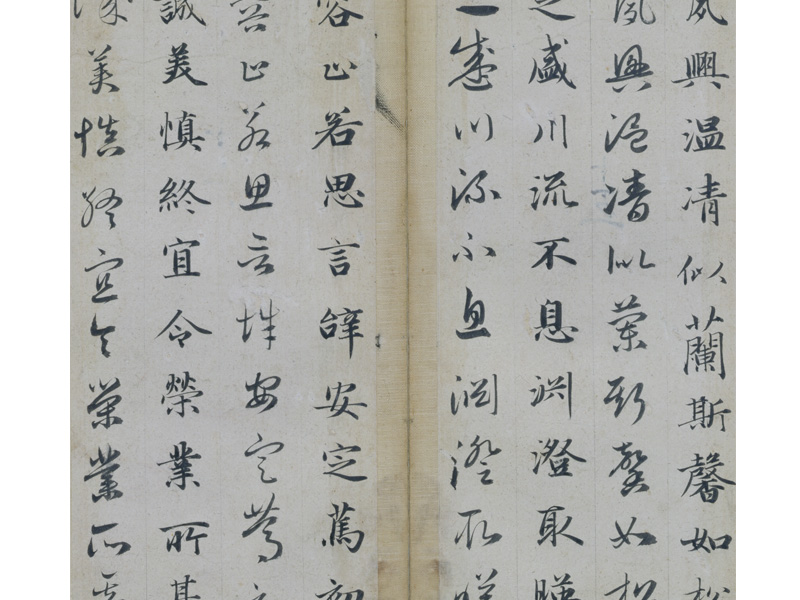 夙興温凊似蘭斯馨如松
夙興温凊似蘭斯馨如松
之盛川流不息淵澄取暎
之盛川流不息淵澄取暎
容止若思言辝安定萬初
容止若思言辝安定萬初
誠美慎終宜令榮業所基
誠美慎終宜令榮業所基